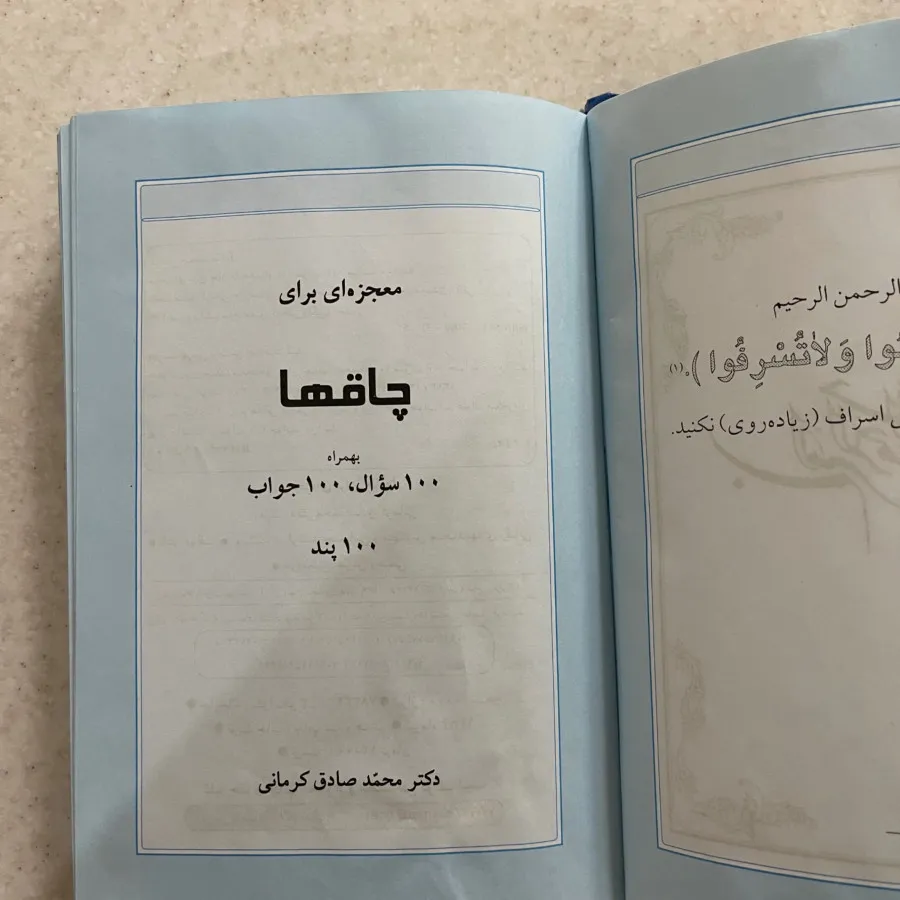 معجزه‌ای برای
چاقها
بهمراه
۱۰۰ سؤال، ۱۰۰ جواب
۱۰۰ پند
دکتر محمّد صادق کرمانی
الرحمن الرحیم
وَلاٰتُسْرِفُوا ).(۱)
اسراف (زیاده‌روی) نکنید.